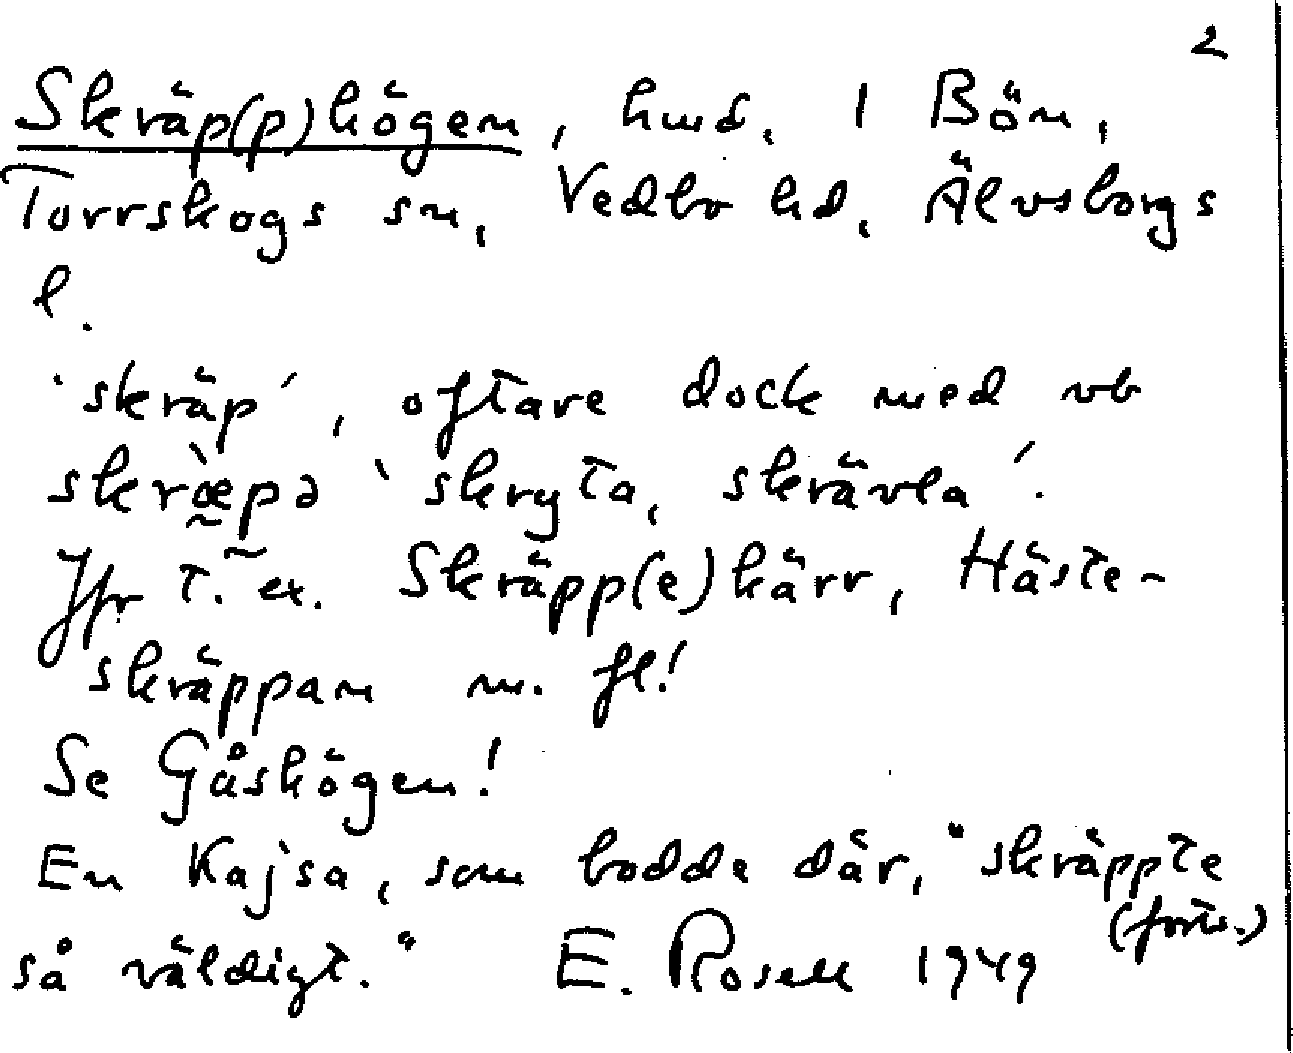 2
Skräp(p)högen, hmd. 1 Bön,
Torrskogs sn, Vedbo hd, Älvsborgs
l.
'skräp', oftare dock med vb
skræ̀pə 'skryta, skrävla'.
Jfr t. ex. Skräpp(e)kärr, Häste-
skräppan m. fl!
Se Gåshögen!
En Kajsa, som bodde där, "skräppte
så väldigt." E. Rosell 1949 (forts.)